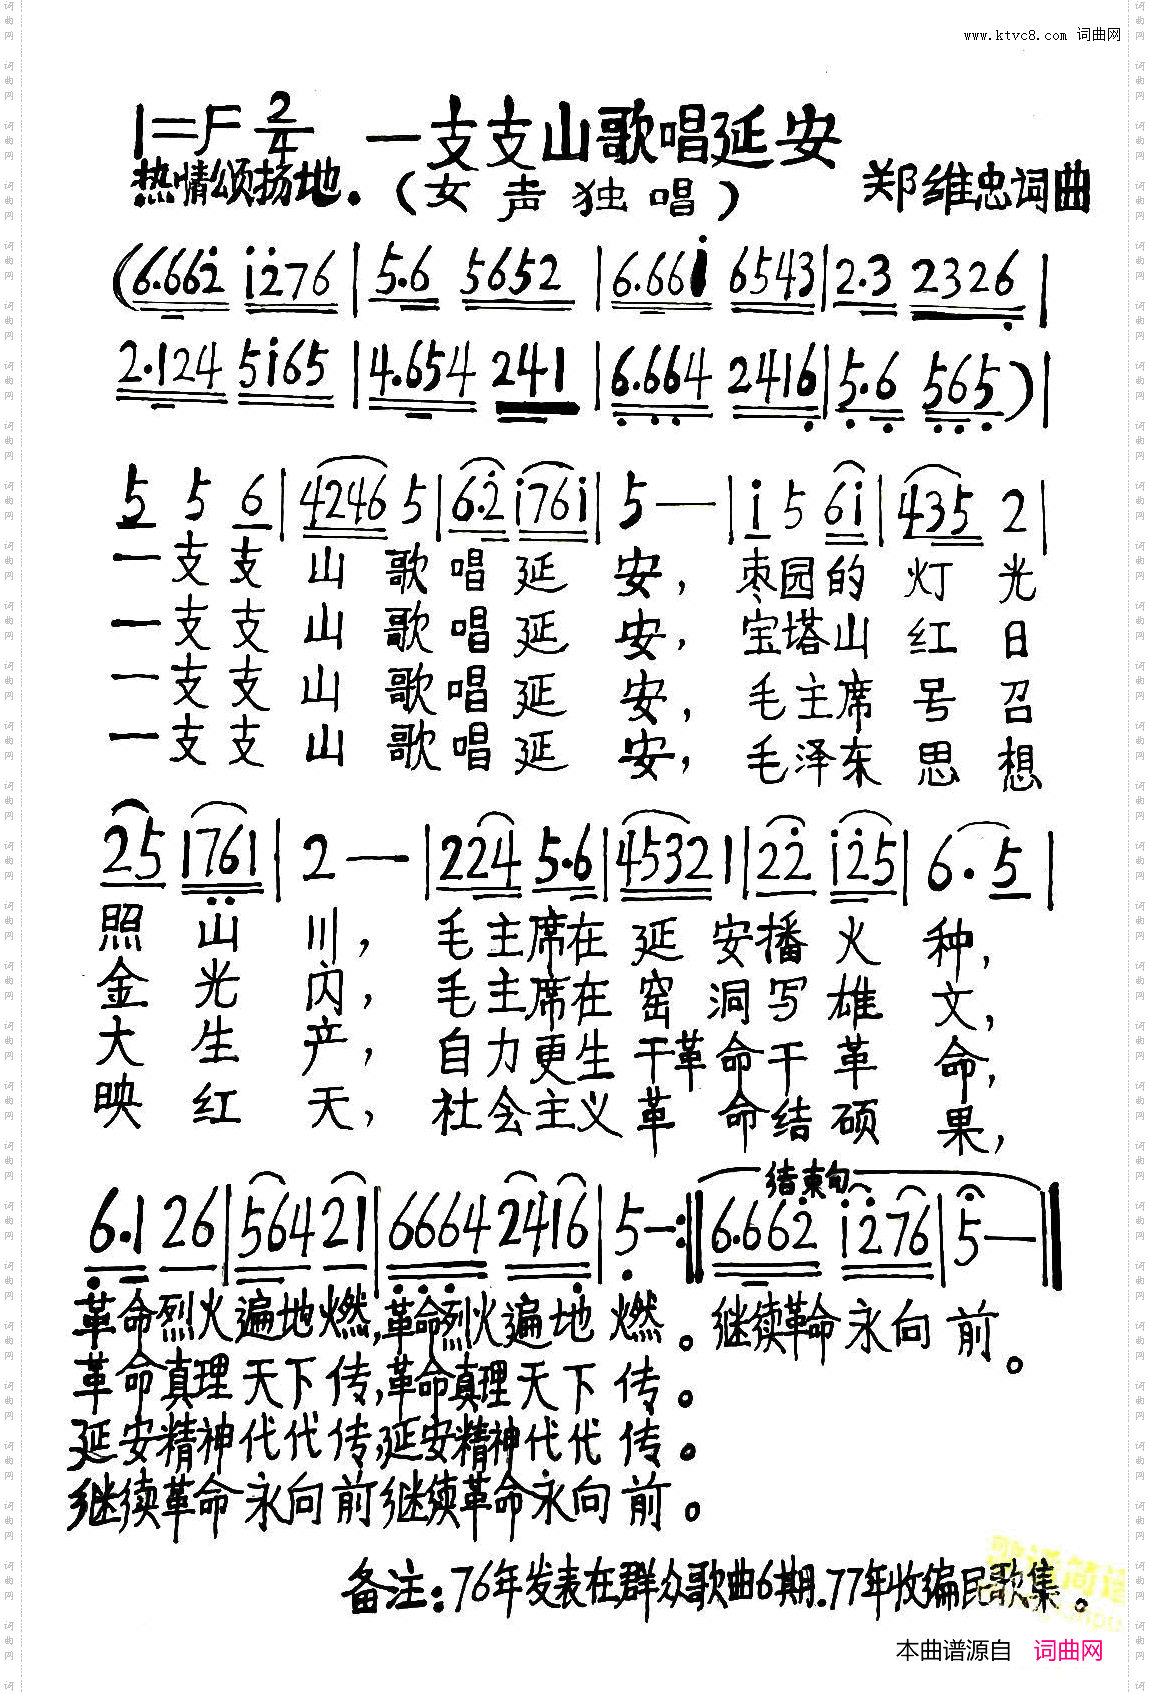 www.ktvc8.com 词曲网
1=F 2/4 一支支山歌唱延安
热情颂扬地. (女声独唱) 郑维忠词曲
(6.662̇ 1̇2̇76 | 5.6 5652 | 6.661̇ 6543 | 2.3 2326̣ |
2.124 51̇65 | 4.654 241 | 6̣.6̣6̣4 2416̣ | 5̣.6̣ 5̣6̣5̣) |
5 5 6 | 4246 5 | 6.2̇ 1̇761̇ | 5 — | 1̇ 5 61̇ | 435 2 |
一支支山歌唱延安，枣园的灯光
一支支山歌唱延安，宝塔山红日
一支支山歌唱延安，毛主席号召
一支支山歌唱延安，毛泽东思想
25 17̣6̣1 | 2 — | 224 5.6 | 4532 1 | 22̇ 1̇2̇5 | 6.5 |
照山川，毛主席在延安播火种，
金光闪，毛主席在窑洞写雄文，
大生产，自力更生干革命干革命，
映红天，社会主义革命结硕果，
结束句
6̣.1 26 | 564 21 | 6̣6̣6̣4 2416̣ | 5̣ — :‖ 6.662̇ 1̇2̇76 | 5̇ — ‖
革命烈火遍地燃,革命烈火遍地燃。继续革命永向前。
革命真理天下传,革命真理天下传。
延安精神代代传,延安精神代代传。
继续革命永向前继续革命永向前。
备注:76年发表在群众歌曲6期.77年收编民歌集。
本曲谱源自 词曲网